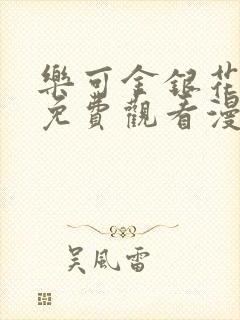 樂可金銀花
免費觀看漫
吳風雷